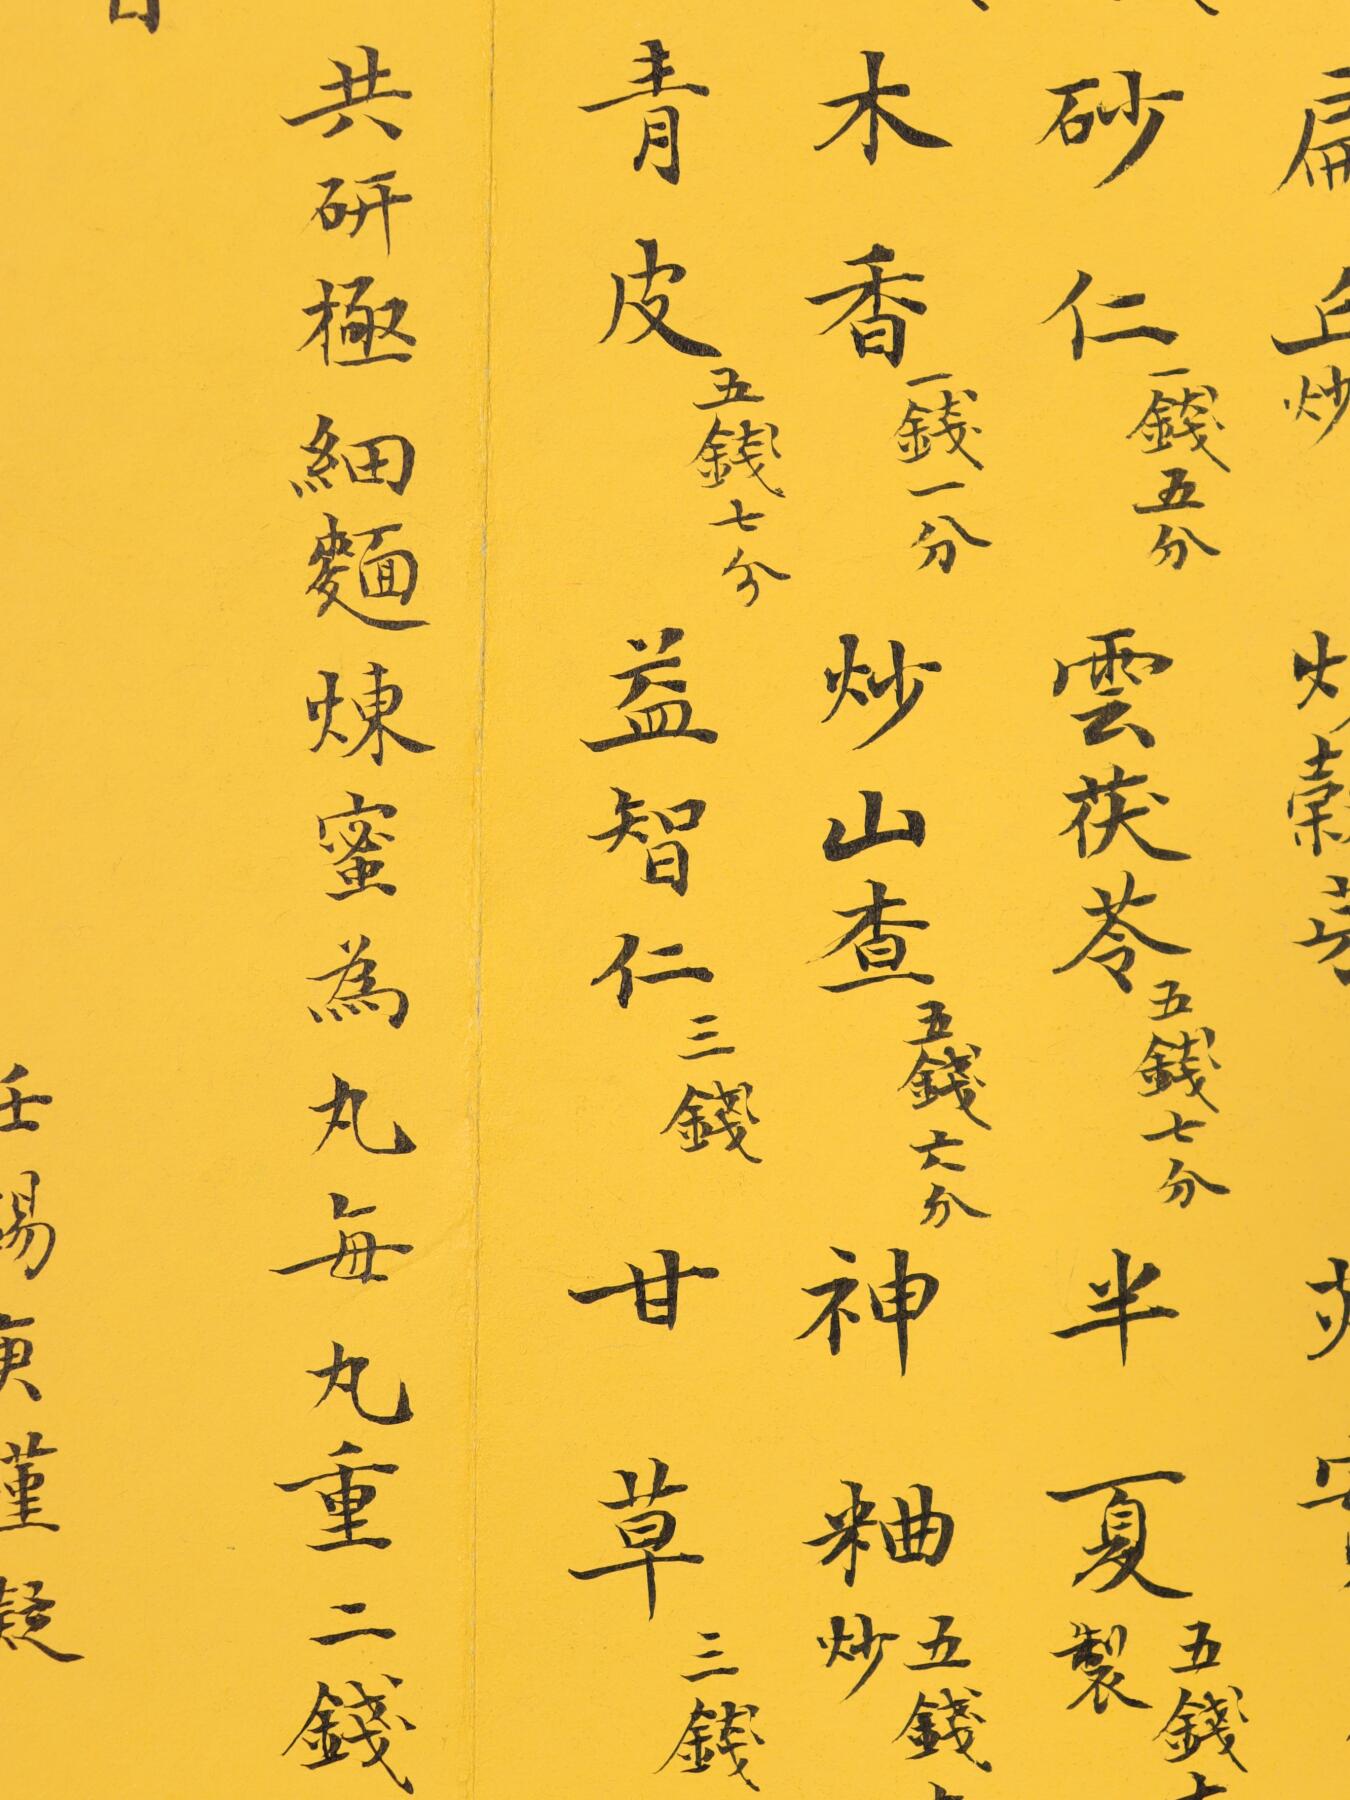 扁豆炒
炒穀芽
砂仁一錢五分 雲茯苓五錢七分 半夏製五錢
木香一錢一分 炒山查五錢六分 神糆炒五錢
青皮五錢七分 益智仁三錢 甘草三錢
共研極細麵煉蜜為丸每丸重二錢
壬錫庚謹擬